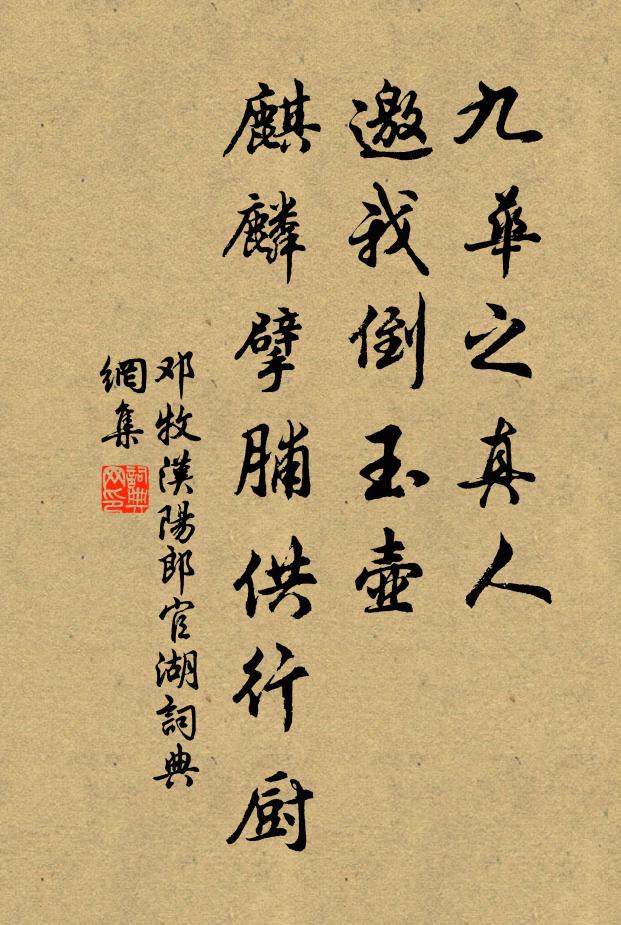 九華之真人
邀我倒玉壺
麒麟擘脯供行厨
邓牧漢陽郎官湖詞典
網集
詞典
网印